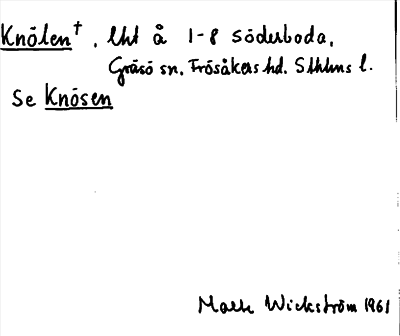 Knölen†. Uht å 1-8 Söderboda,
Gräsö sn. Frösåkers hd. Sthlms l.
Se Knösen
Wickström 1961